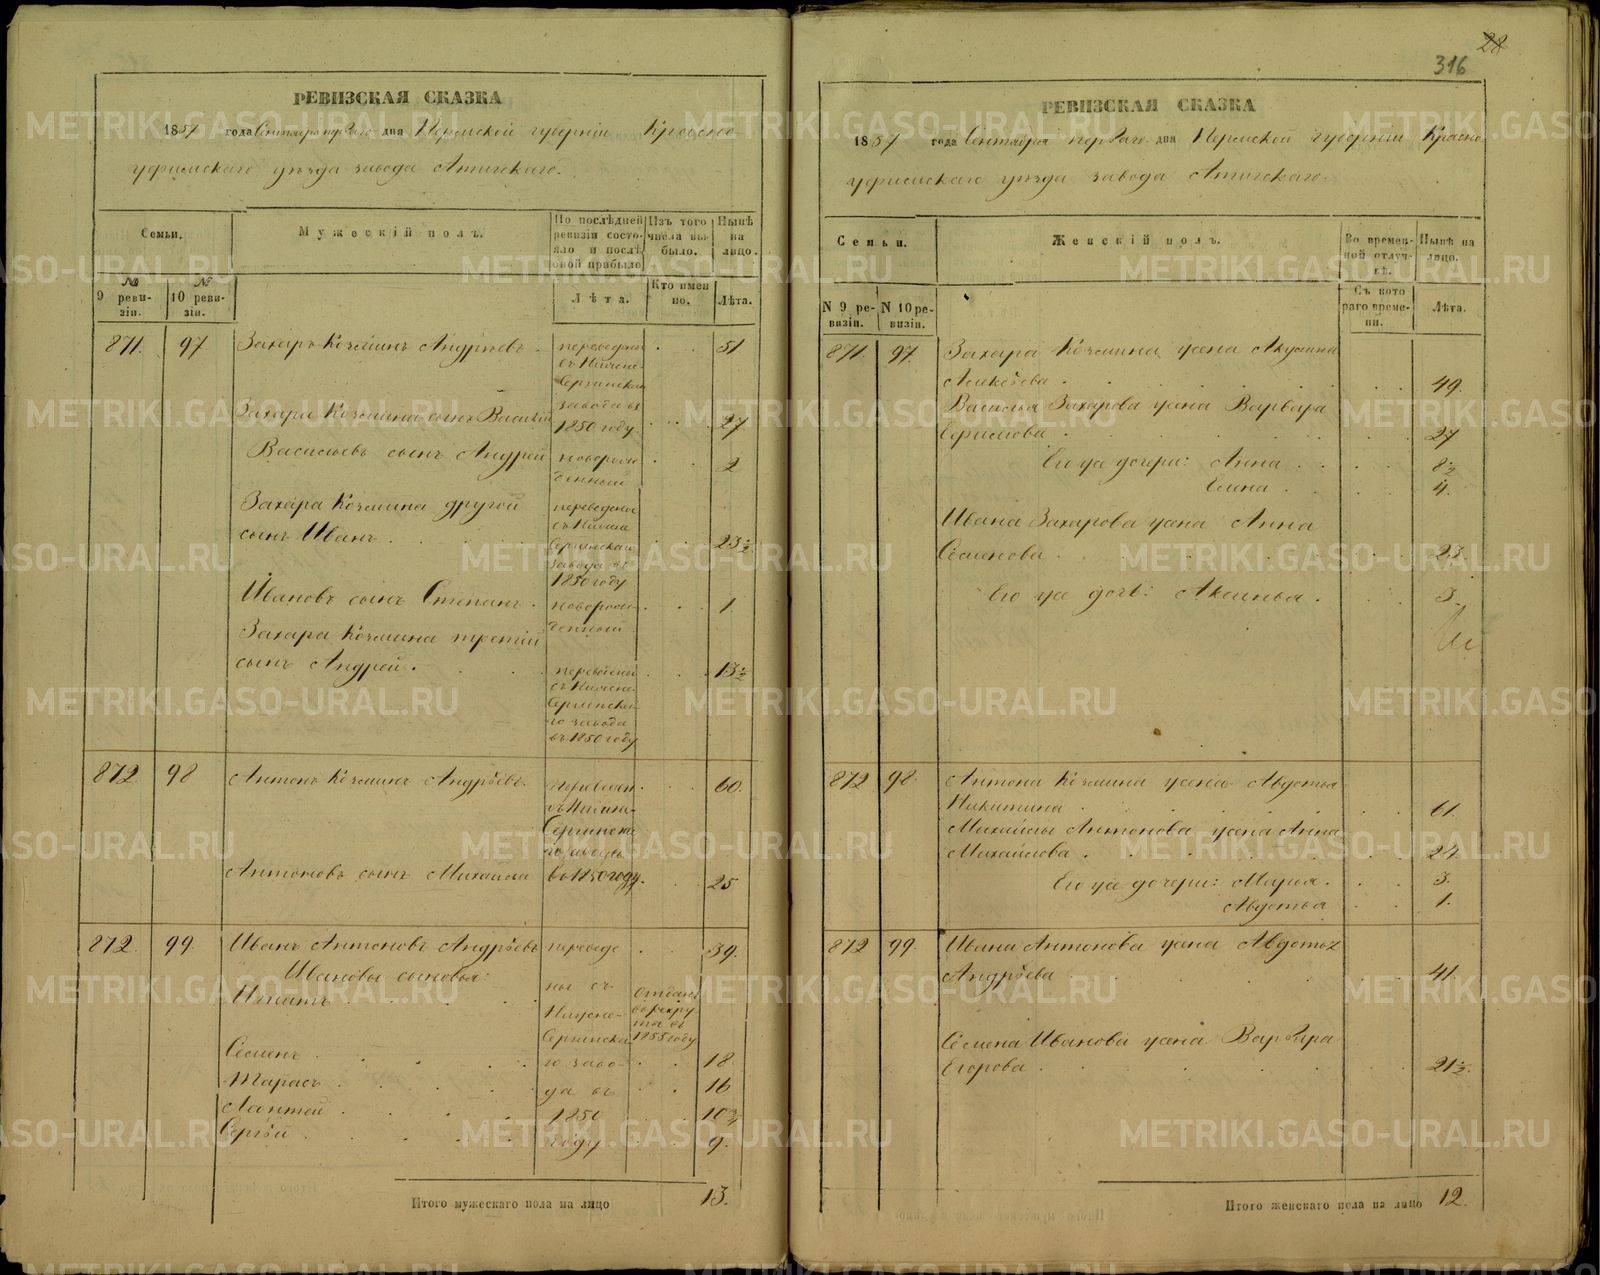 РЕВИЗСКАЯ СКАЗКА
1857 года Сентября перваго дня Пермской губерніи Красно
уфимскаго уѣзда завода Атигскаго.
Семьи.
Мужескій полъ.
По послѣдней ревизіи состояло и послѣ оной прибыло
Изъ того числа выбыло.
Нынѣ на лицо.
№ 9 ревизіи.
№ 10 ревизіи.
Лѣта.
Кто именно.
Лѣта.
871. 97 Захаръ Козминъ Андрѣевъ переведены 51
съ Нижне-
Сергинскаго
завода въ
Захара Козмина сынъ Василій 1850 году. 27
Васильевъ сынъ Андрей новорож 2
денный
Захара Козмина другой переведены
сынъ Иванъ съ Нижне 23½
Сергинскаго
завода въ
1850 году
Ивановъ сынъ Степанъ новорож- 1.
денный
Захара Козмина третій
сынъ Андрей. переведены 13½
съ Нижне-
Сергинска
го завода
въ 1850 году
872 98 Антонъ Козминъ Андрѣевъ переведен 60.
съ Нижне-
Сергинска
го завода
Антоновъ сынъ Михайла въ 1850 году. 25
872. 99. Иванъ Антоновъ Андрѣевъ переведе 39.
Ивановы сыновья:
Игнатъ ны съ Нижне- Отданъ
въ рекру
та въ
1855 году
Сергинска
Семенъ го заво- 18
Тарасъ да въ 16
Лантей 1850 10¾
Сергѣй году 9.
Итого мужескаго пола на лицо 13.
28
316
РЕВИЗСКАЯ СКАЗКА
1857 года Сентября перваго дня Пермской губерніи Красно
уфимскаго уѣзда завода Атигскаго.
Семьи.
Женскій полъ.
Во временной отлучкѣ.
Нынѣ на лицо.
N 9 ревизіи.
N 10 ревизіи.
Съ котораго времени.
Лѣта.
871 97. Захара Козмина жена Акулина
Алексѣева 49.
Василья Захарова жена Варвара
Ефимова 27
Его же дочери: Анна 8½
Елена 4.
Ивана Захарова жена Анна
Семенова 23.
Его же дочь: Аксинья 3.
872 98. Антона Козмина жена Авдотья
Никитина 61.
Михайлы Антонова жена Анна
Михайлова 24
Его же дочери: Марья. 3.
Авдотья 1.
872 99. Ивана Антонова жена Авдотья
Андрѣева 41.
Семена Иванова жена Варвара
Егорова 21½.
Итого женскаго пола на лицо 12.
METRIKI.GASO-URAL.RU